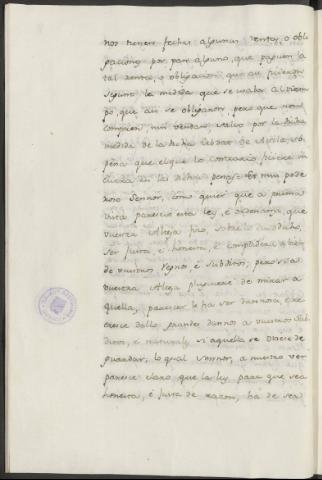 nos tienen fechas algunas rentas, o obli
gaciones por pan alguno, que paguen la
tal renta, o obligacion que asi hicieron
segunt la medida que se usaba al tiem
po, que asi se obligaron, pero que non
compren, nin vendan, salvo por la dicha
medida de la dicha Cibdat de Avila, só
pena que el que lo contrario ficiere in
curra en las dichas penas. Es mui pode
roso Sennor, como quier que a prima
vista parescio esta ley, é ordenanza, que
vuestra Alteza fizo, sobre lo susodicho,
ser justa, é honesta, é complidera a bien
de vuestros Regnos é Subditos; pero si a
vuestra Alteza pluguiere de mirar a
quella, parescerle ha ser dannosa, é re
cresce dello grandes dannos a vuestros Sub
ditos, é naturales si aquella se oviese de
guardar; lo qual Sennor, a nuestro ver
paresce claro que la ley para que sea
honesta, é justa de razon, ha de ser